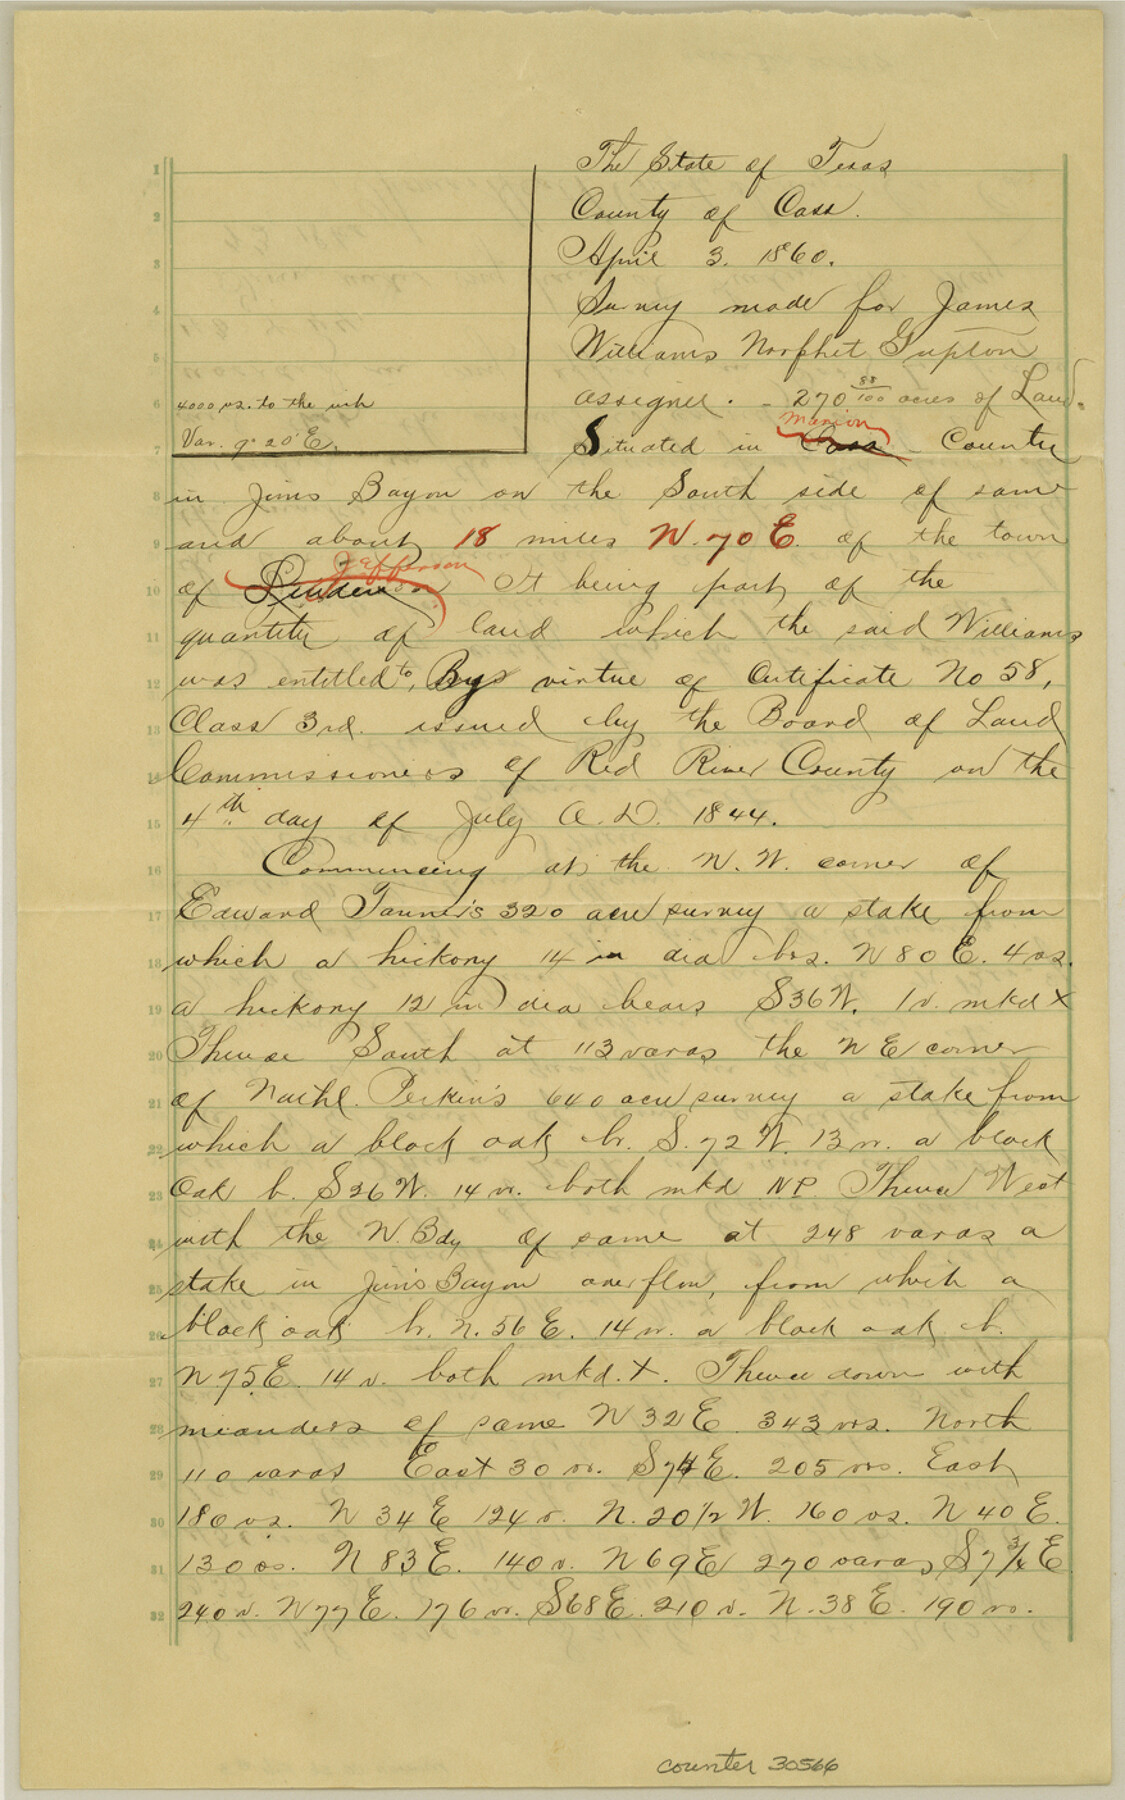 The State of Texas
County of Cass.
April 3. 1860.
Survey made for James
Williams Norphet Gupton
assignee. - 270 88/100 acres of Land.
4000 vs. to the inch
Var. 9° 20' E.
Marion
Situated in Cass County
in Jims Bayou on the South side of same
and about 18 miles N. 70 E. of the town
Jefferson
of Linden It being part of the
quantity of land which the said Williams
was entitled to, By virtue of Certificate No 58,
Class 3rd. issued by the Board of Land
Commissioners of Red River County on the
4th day of July A.D. 1844.
Commencing at the N.W. corner of
Edward Tanner's 320 acre survey a stake from
which a hickory 14 in dia brs. N 80 E. 4 vs.
a hickory 12 in dia bears S36W. 1 v. mkd X
Thence South at 113 varas the N E corner
of Nathl. Perkin's 640 acre survey a stake from
which a black oak br. S. 72 W. 13 vr. a black
Oak b. S26W. 14 vr. both mkd NP. Thence West
with the N. Bdy of same at 248 varas a
stake in Jim's Bayou overflow, from which a
black oak br. N. 56 E. 14 vr. a black oak b.
N 75 E. 14 v. both mkd. X. Thence down with
meanders of same N 32 E 343 vrs. North
110 varas East 30 vr. S74E. 205 vrs. East
180 vs. N 34 E 124 v. N. 20 1/2 W. 160 vs. N 40 E.
130 vs. N 83 E. 140 v. N 69 E 270 varas S 7 3/4 E
240 v. N 77 E. 176 vr. S68E. 210 v. N. 38 E. 190 vs.
counter 30566